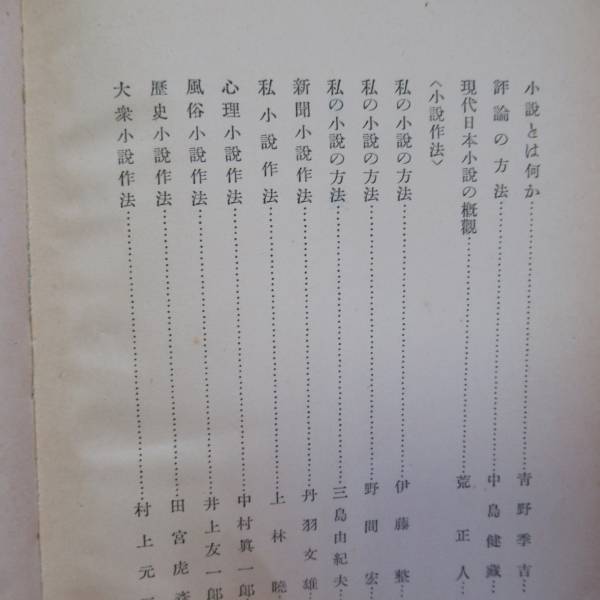 小說とは何か……青野季吉…
評論の方法……中島健藏…
現代日本小說の槪觀……荒正人…
〈小說作法〉
私の小說の方法……伊藤整…
私の小說の方法……野間宏…
私の小說の方法……三島由紀夫…
新聞小說作法……丹羽文雄…
私小說作法……上林曉…
心理小說作法……中村眞一郎…
風俗小說作法……井上友一郎
歷史小說作法……田宮虎彥
大衆小說作法……村上元